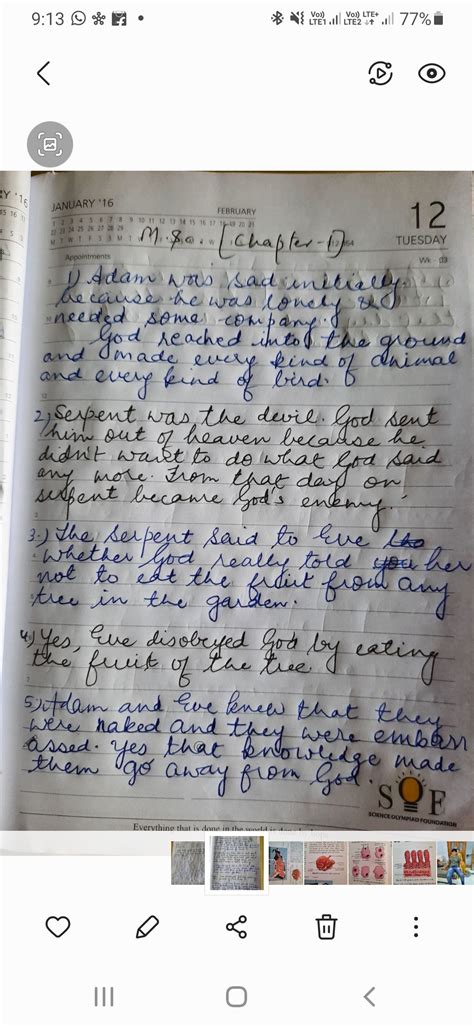 9:13 77%
JANUARY '16
FEBRUARY
12
TUESDAY
Appointments
Wk - 03
M.Sc [Chapter-1]
1) Adam was sad initially
because he was lonely &
needed some company.
God reached into the ground
and made every kind of animal
and every kind of bird.
2) Serpent was the devil. God sent
him out of heaven because he
didn't want to do what God said
any more. From that day on
serpent became God's enemy.
3.) The serpent said to Eve
whether God really told you her
not to eat the fruit from any
tree in the garden.
4.) Yes, Eve disobeyed God by eating
the fruit of the tree
5.) Adam and Eve knew that they
were naked and they were embarr
assed. Yes that knowledge made
them go away from God.
SOF
SCIENCE OLYMPIAD FOUNDATION
Everything that is done in the world is